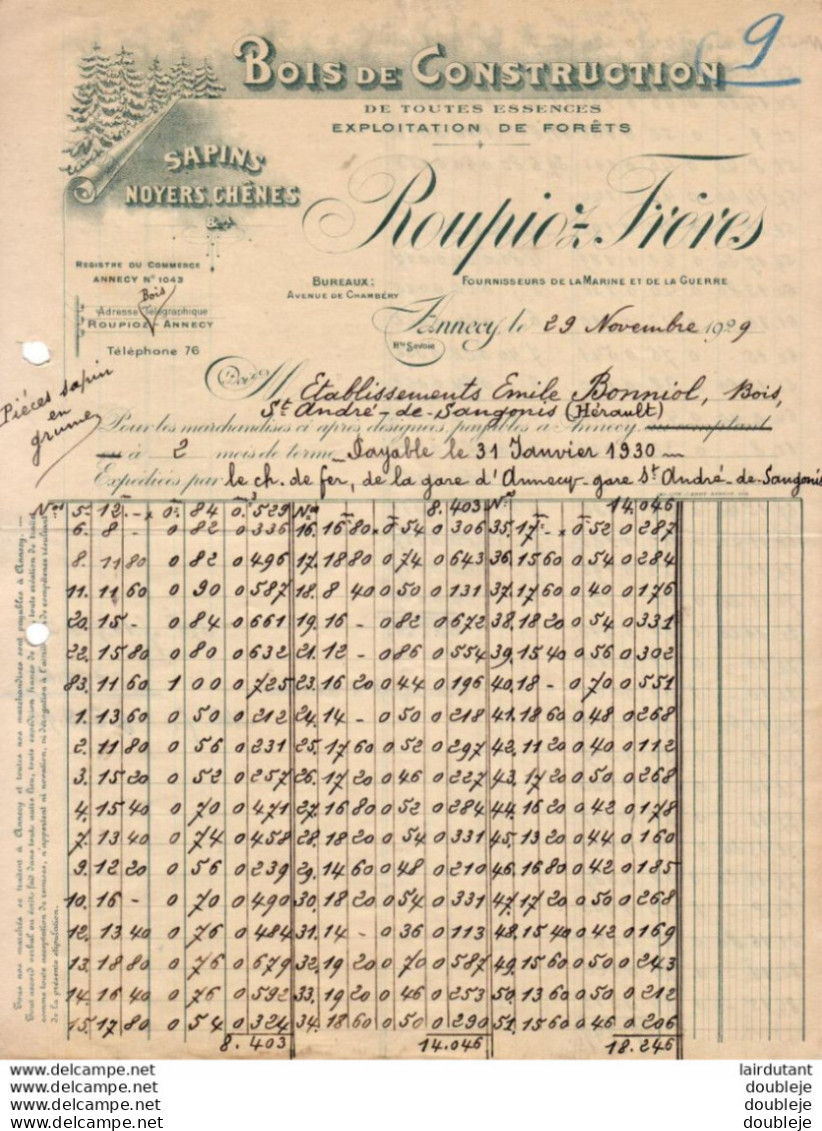 9
BOIS DE CONSTRUCTION
DE TOUTES ESSENCES
EXPLOITATION DE FORÊTS
SAPINS
NOYERS, CHÊNES
&
Roupioz Frères
REGISTRE DU COMMERCE
ANNECY N° 1043
Bois
Adresse Télégraphique
ROUPIOZ-ANNECY
Téléphone 76
BUREAUX:
AVENUE DE CHAMBÉRY
FOURNISSEURS DE LA MARINE ET DE LA GUERRE
Annecy, le 29 Novembre 1929
Hte Savoie
Pièces sapin
en
grume
Doivent M Etablissements Emile Bonniol, Bois,
St André-de-Sangonis (Hérault)
Pour les marchandises ci après désignées payables à Annecy, au comptant
à 2 mois de terme Payable le 31 Janvier 1930
Expédiées par le ch. de fer, de la gare d'Annecy-gare St André-de-Sangonis
Nos 5. 12 - x 0 84 0 529 Nos 8.403 Nos 14.046
6. 8 - 0 82 0 336 16. 16 80 x 0 54 0 306 35. 17 - x 0 52 0 287
8. 11 80 0 82 0 496 17. 18 80 0 74 0 643 36. 15 60 0 54 0 284
11. 11 60 0 90 0 587 18. 8 40 0 50 0 131 37. 17 60 0 40 0 176
20. 15 - 0 84 0 661 19. 16 - 0 82 0 672 38. 18 20 0 54 0 331
22. 15 80 0 80 0 632 21. 12 - 0 86 0 554 39. 15 40 0 56 0 302
83. 11 60 1 00 0 725 23. 16 20 0 44 0 196 40. 18 - 0 70 0 551
1. 13 60 0 50 0 212 24. 14 - 0 50 0 218 41. 18 60 0 48 0 268
2. 11 80 0 56 0 231 25. 17 60 0 52 0 297 42. 11 20 0 40 0 112
3. 15 20 0 52 0 257 26. 17 20 0 46 0 227 43. 17 20 0 50 0 268
4. 15 40 0 70 0 471 27. 16 80 0 52 0 284 44. 16 20 0 42 0 178
7. 13 40 0 74 0 458 28. 18 20 0 54 0 331 45. 13 20 0 44 0 160
9. 12 20 0 56 0 239 29. 14 60 0 48 0 210 46. 16 80 0 42 0 185
10. 16 - 0 70 0 490 30. 18 20 0 54 0 331 47. 17 20 0 50 0 268
12. 13 40 0 76 0 484 31. 14 - 0 36 0 113 48. 15 40 0 42 0 169
13. 18 80 0 76 0 679 32. 19 20 0 70 0 587 49. 15 60 0 50 0 243
14. 16 40 0 76 0 592 33. 19 20 0 46 0 253 50. 13 60 0 50 0 212
15. 17 80 0 54 0 324 34. 18 60 0 50 0 290 51. 15 60 0 46 0 206
8.403 14.046 18.246
de la présente stipulation.
lairdutant
doubleje
doubleje
doubleje
www.delcampe.net